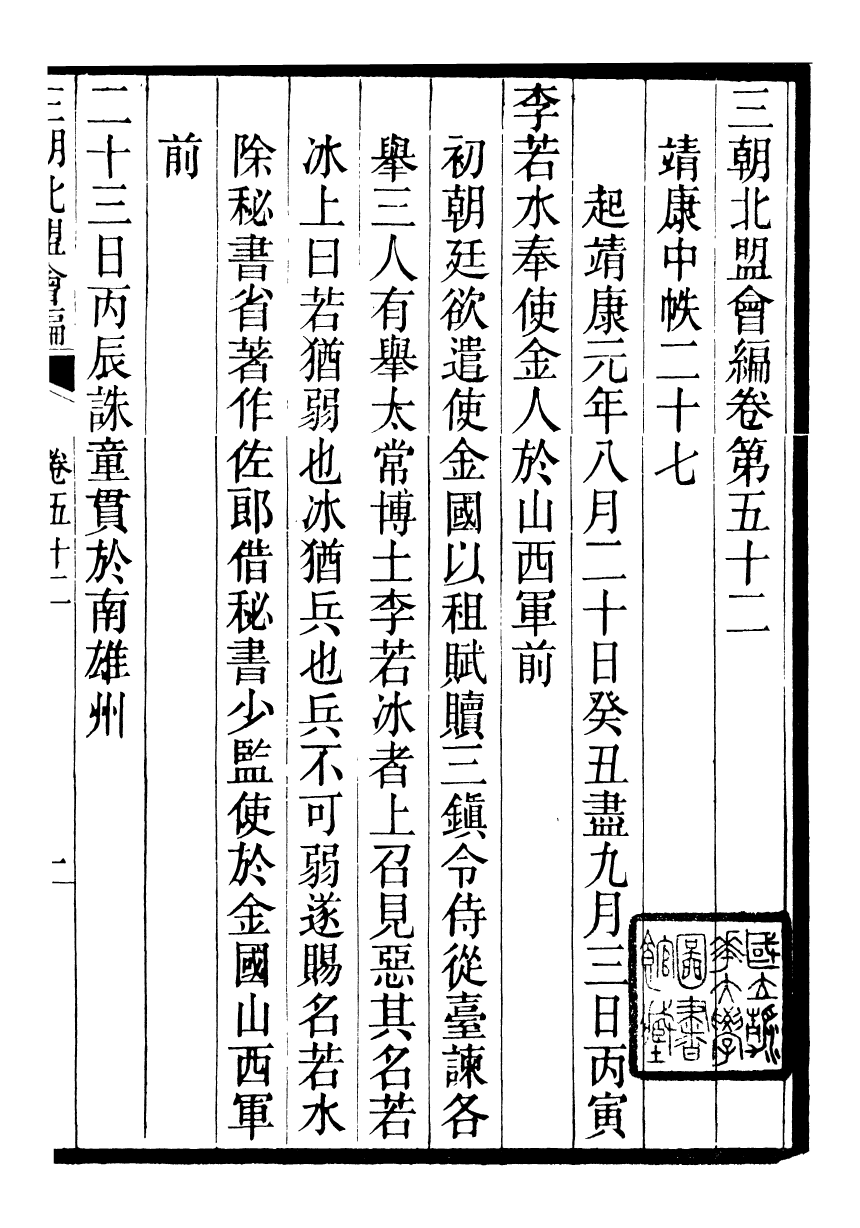 三朝北盟會編卷第五十二
靖康中帙二十七
起靖康元年八月二十日癸丑盡九月三日丙寅
李若水奉使金人於山西軍前
初朝廷欲遣使金國以租賦贖三鎮令侍從臺諫各
舉三人有舉太常博士李若冰者上召見惡其名若
冰上曰若猶弱也冰猶兵也兵不可弱遂賜名若水
除秘書省著作佐郎借秘書少監使於金國山西軍
前
二十三日丙辰誅童貫於南雄州
三朝北盟會編
卷五十二
國立
華大學
圖書
館藏